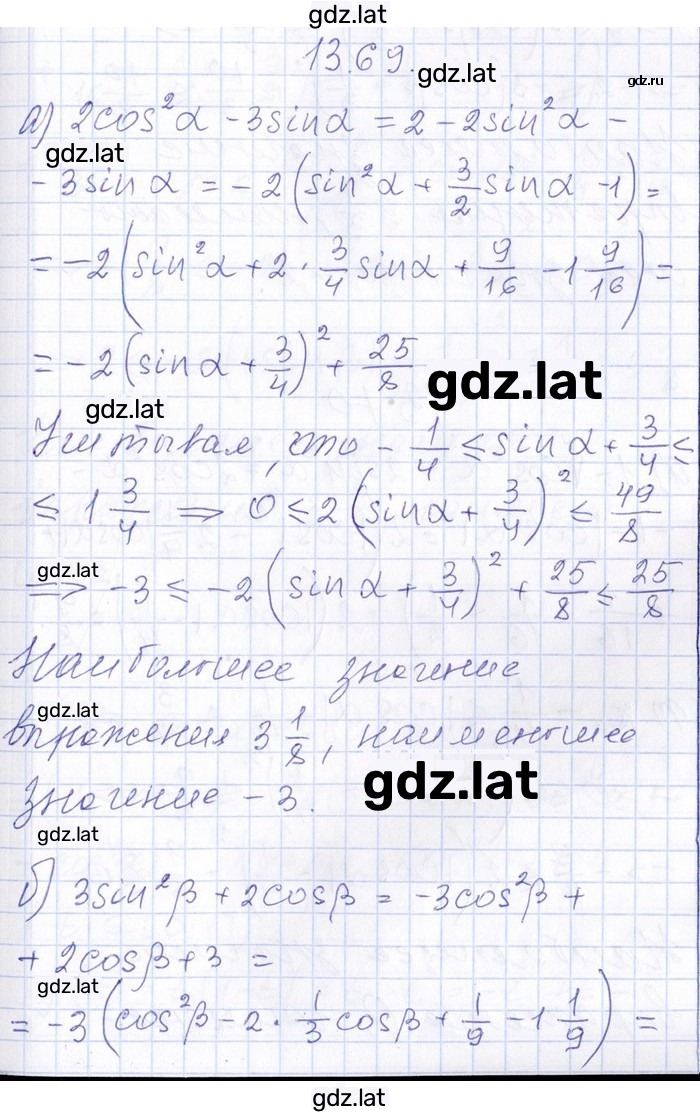 gdz.lat
13.69.
gdz.lat
gdz.ru
а) 2cos²α - 3sinα = 2 - 2sin²α -
gdz.lat
- 3sinα = -2(sin²α + 3/2 sinα - 1) =
= -2(sin²α + 2 · 3/4 sinα + 9/16 - 1 9/16) =
= -2(sinα + 3/4)² + 25/8
gdz.lat
gdz.lat
Учитывая, что -1/4 ≤ sinα + 3/4 ≤
≤ 1 3/4 ⇒ 0 ≤ 2(sinα + 3/4)² ≤ 49/8
gdz.lat
⇒ -3 ≤ -2(sinα + 3/4)² + 25/8 ≤ 25/8
Наибольшее значение
gdz.lat
выражения 3 1/8, наименьшее
gdz.lat
значение -3.
gdz.lat
б) 3sin²β + 2cosβ = -3cos²β +
+ 2cosβ + 3 =
gdz.lat
= -3(cos²β - 2 · 1/3 cosβ + 1/9 - 1 1/9) =
gdz.lat